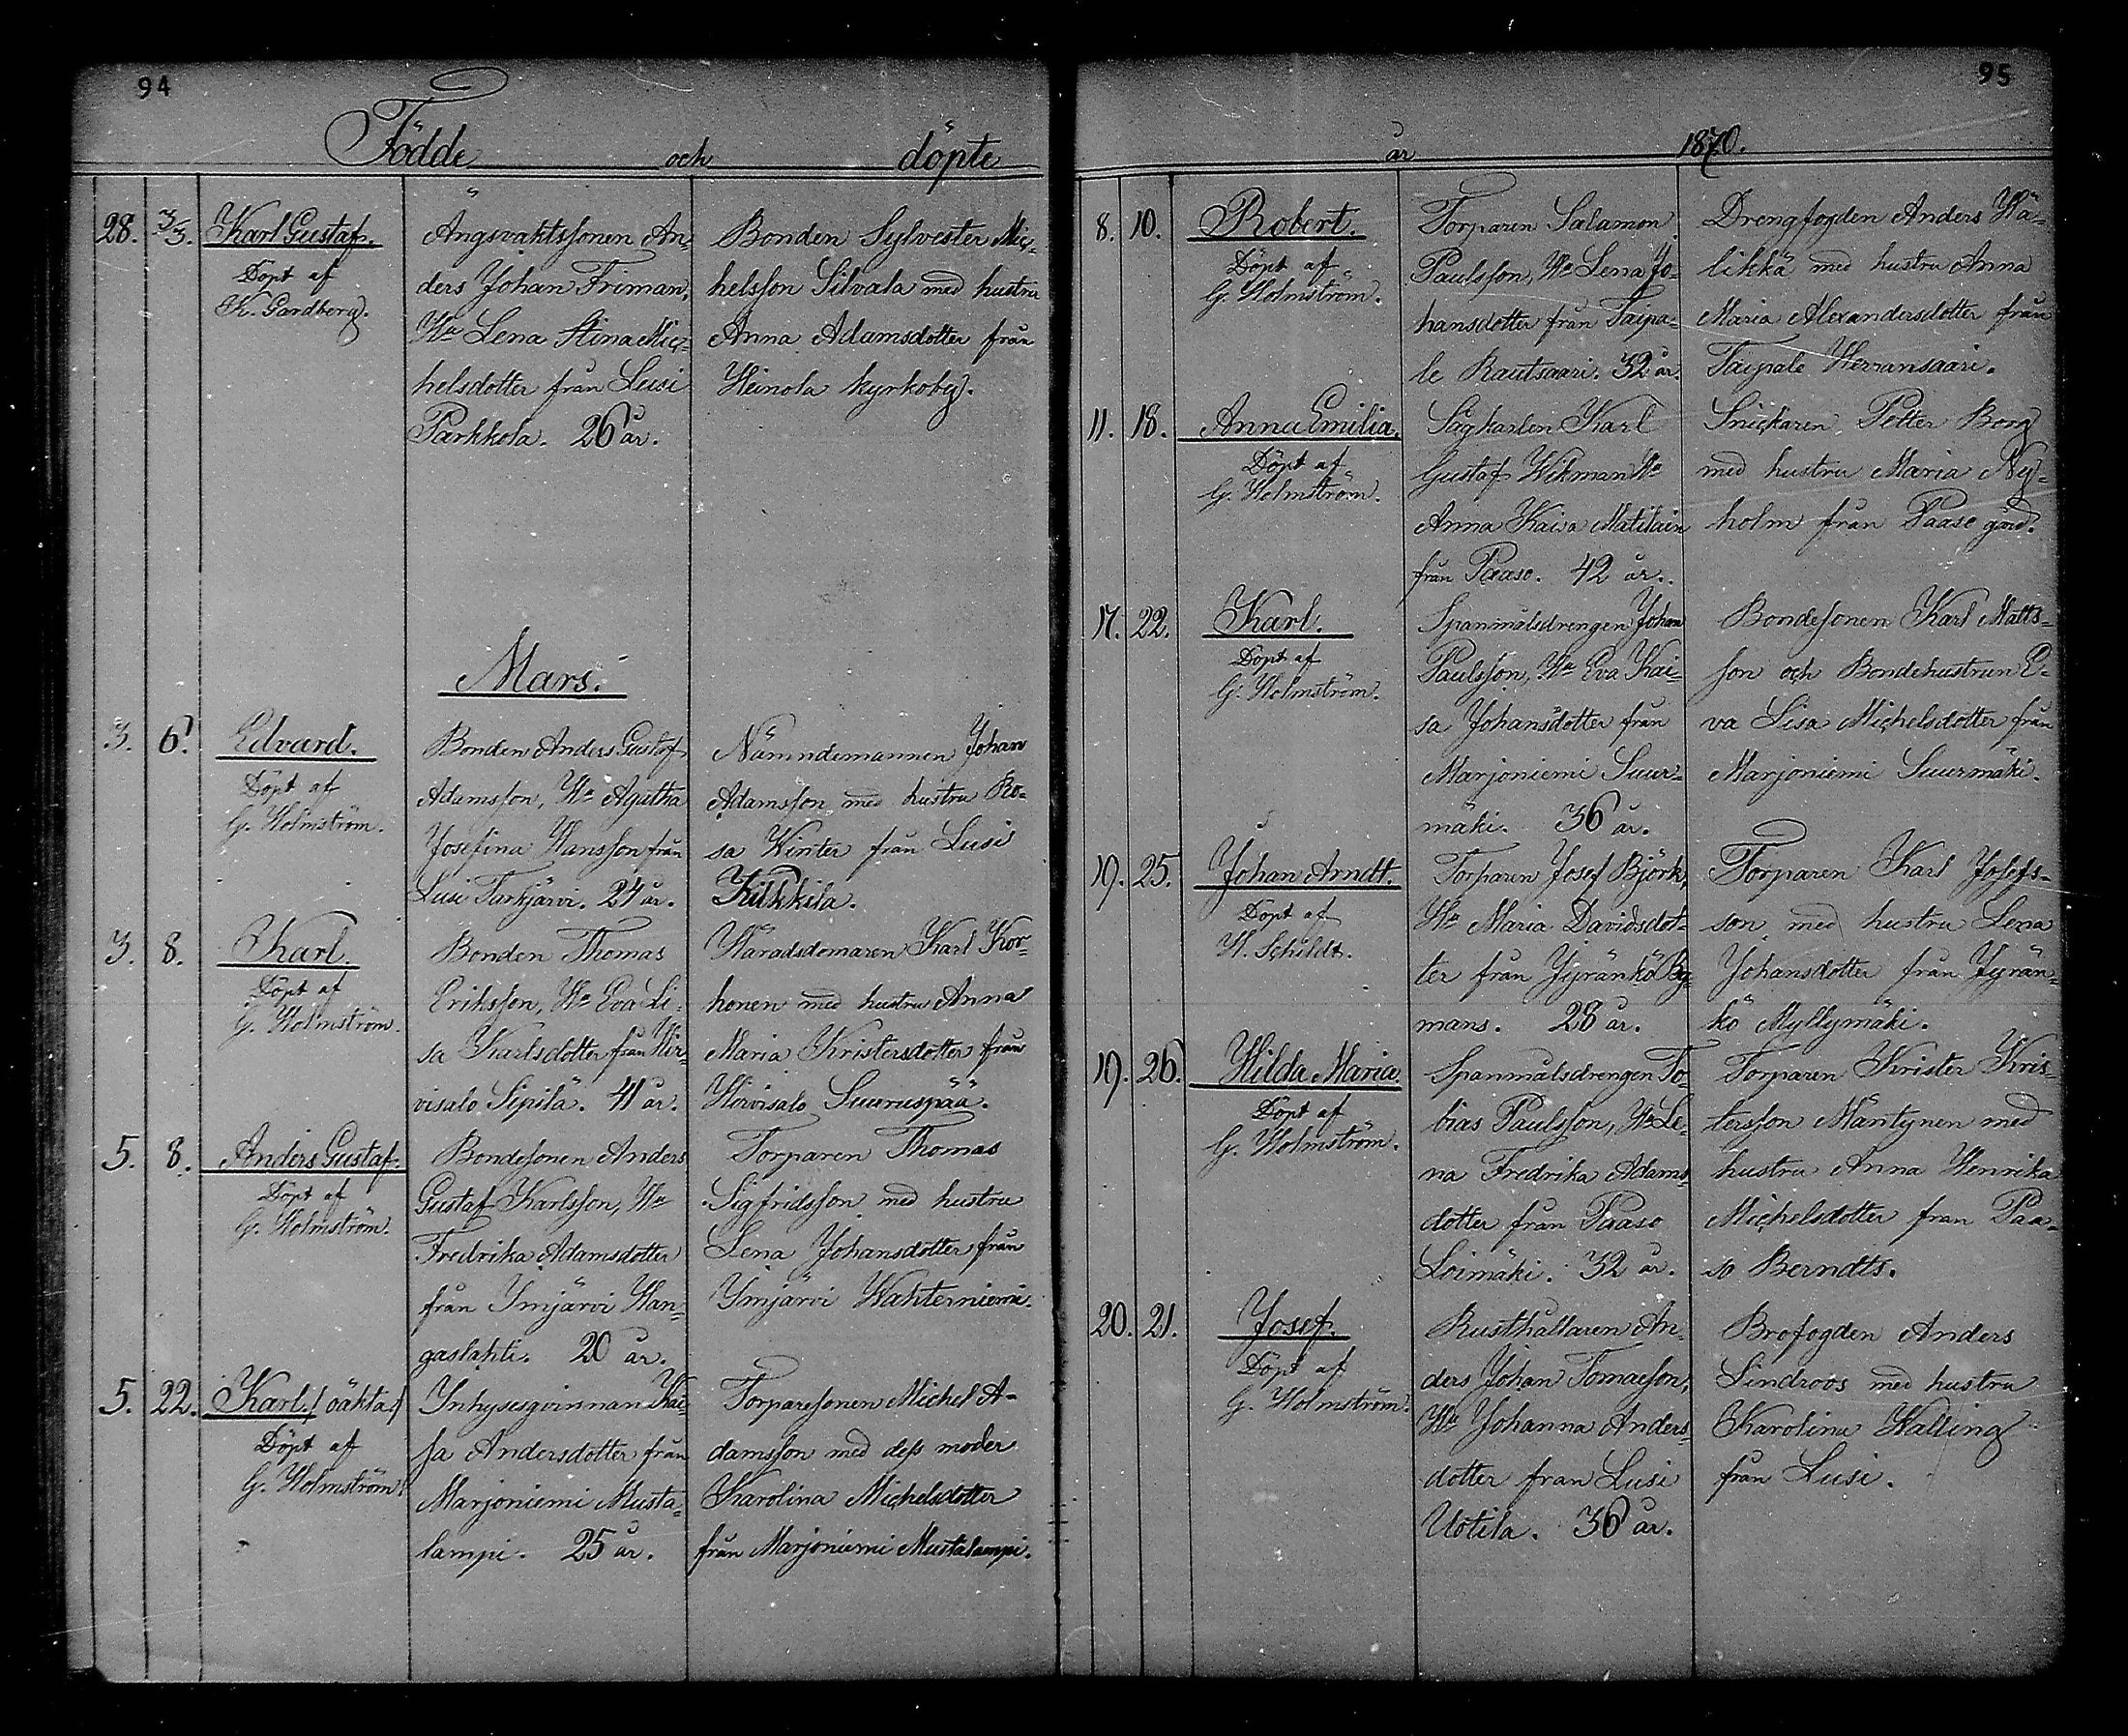 94
Födde och döpte
28. 3/3. Karl Gustaf.
Döpt af
K. Gardberg.
Ängsvaktssonen An-
ders Johan Friman,
Hu Lena Stina Mic-
helsdotter från Lusi
Parkkola. 26 år.
Bonden Sylvester Mic-
helsson Silvala med hustru
Anna Adamsdotter från
Heinola kyrkoby.
Mars.
3. 6. Edvard.
Döpt af
G. Holmström.
Bonden Anders Gustaf
Adamsson, Hu Agatha
Josefina Hansson från
Lusi Tarkjärvi. 24 år.
Nämndemannen Johan
Adamsson med hustru Ro-
sa Winter från Lusi
Kukkila.
3. 8. Karl.
Döpt af
G. Holmström.
Bonden Thomas
Eriksson, Hu Eva Li-
sa Karlsdotter från Hir-
visalo Sipilä. 41 år.
Häradsdomaren Karl Kor-
honen med hustru Anna
Maria Kristersdotter från
Hirvisalo Suuruspää.
5. 8. Anders Gustaf.
Döpt af
G. Holmström.
Bondesonen Anders
Gustaf Karlsson, Hu
Fredrika Adamsdotter
från Imjärvi Han-
gaslahti. 20 år.
Torparen Thomas
Sigfridsson med hustru
Lena Johansdotter från
Imjärvi Wahterniemi.
5. 22. Karl. /oäkta/
Döpt af
G. Holmström.
Inhysesqvinnan Kai-
sa Andersdotter från
Marjoniemi Musta-
lampi. 25 år.
Torparesonen Michel A-
damsson med dess moder
Karolina Michelsdotter
från Marjoniemi Mustalampi.
95
år 1870.
8. 10. Robert.
Döpt af
G. Holmström.
Torparen Salamon
Paulsson, Hu Lena Jo-
hansdotter från Taipa-
le Rautsaari. 32 år.
Drengfogden Anders Hä-
likkä med hustru Anna
Maria Alexandersdotter från
Taipale Herransaari.
11. 18. Anna Emilia.
Döpt af
G. Holmström.
Sågkarlen Karl
Gustaf Wikman Hu
Anna Kaisa Matilain
från Paaso. 42 år.
Snickaren Petter Borg
med hustru Maria Ny-
holm från Paaso gård.
17. 22. Karl.
Döpt af
G. Holmström.
Spanmålsdrengen Johan
Paulsson, Hu Eva Kai-
sa Johansdotter från
Marjoniemi Suur-
mäki. 36 år.
Bondesonen Karl Matts-
son och Bondehustrun E-
va Lisa Michelsdotter från
Marjoniemi Suurmäki.
19. 25. Johan Arndt.
Döpt af
W. Schildt.
Torparen Josef Björk,
Hu Maria Davidsdot-
ter från Jyränkö By-
mans. 28 år.
Torparen Karl Josefs-
son med hustru Lena
Johansdotter från Jyrän-
kö Myllymäki.
19. 26. Hilda Maria.
Döpt af
G. Holmström.
Spanmålsdrengen To-
bias Paulsson, Hu Le-
na Fredrika Adams-
dotter från Paaso
Loimäki. 32 år.
Torparen Krister Kris-
tersson Mäntynen med
hustru Anna Henrika
Michelsdotter från Paa-
so Berndts.
20. 21. Josef.
Döpt af
G. Holmström.
Rusthållaren An-
ders Johan Tomasson,
Hu Johanna Anders-
dotter från Lusi
Uotila. 36 år.
Brofogden Anders
Lindroos med hustru
Karolina Walling
från Lusi.